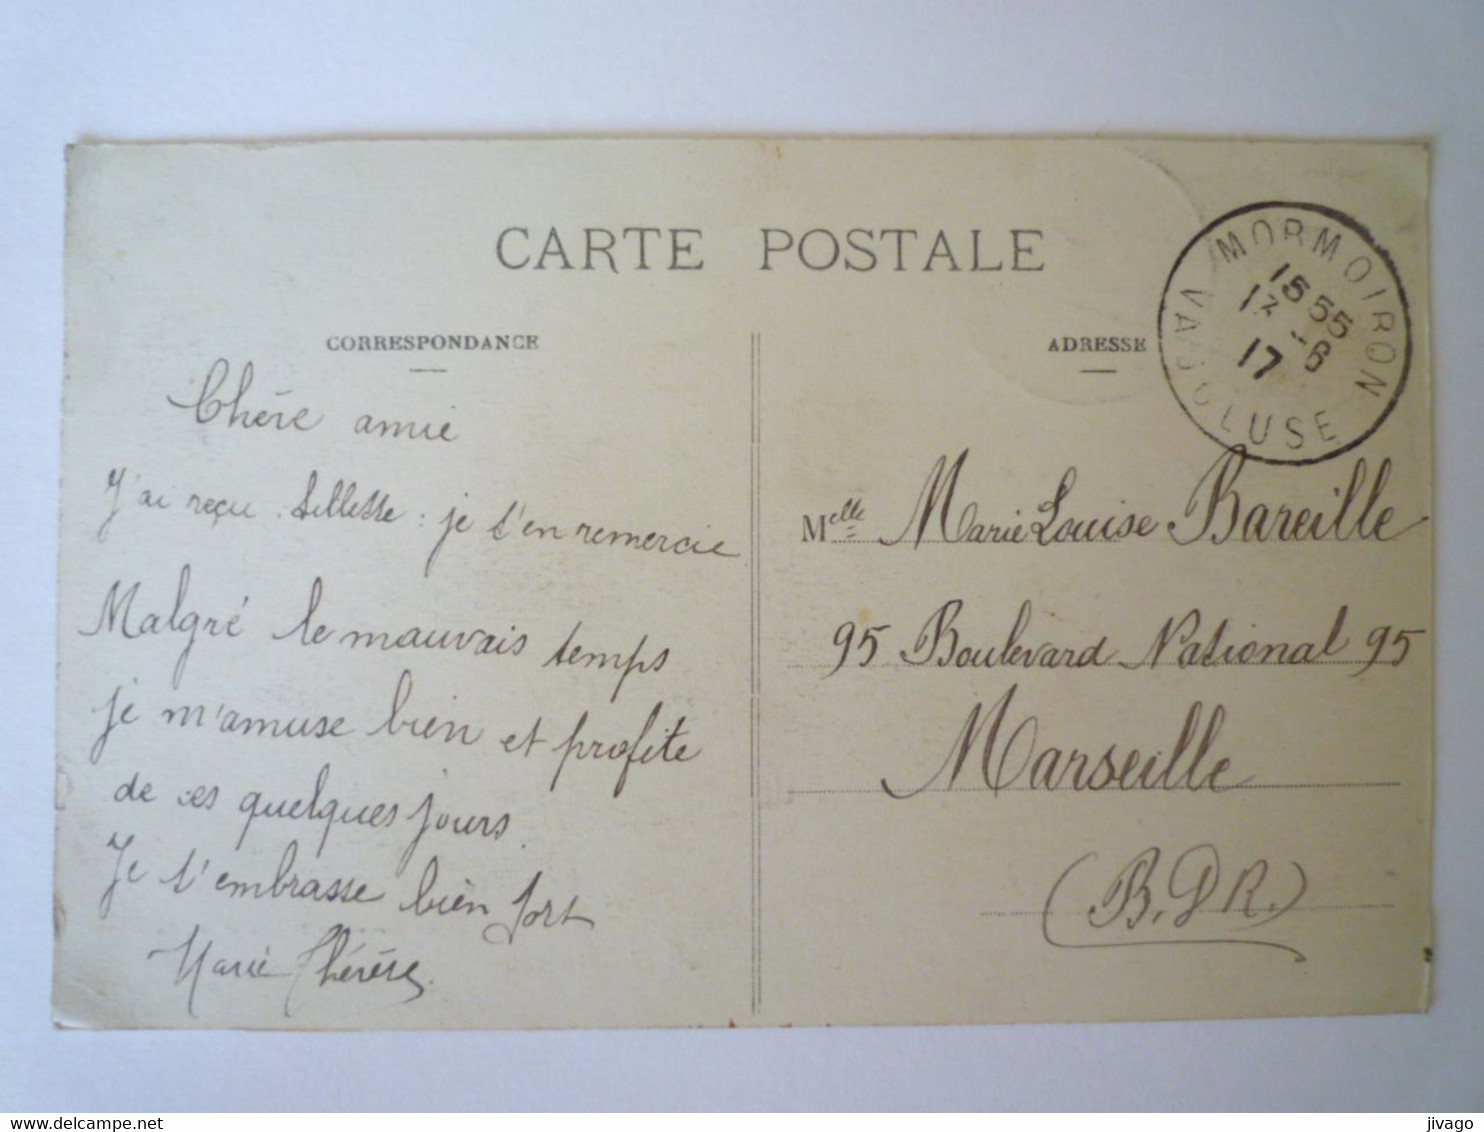 CARTE POSTALE
CORRESPONDANCE
ADRESSE
MORMOIRON
15 55
13 -6
17
VAUCLUSE
Chère amie
J'ai reçu : ta lettre : je t'en remercie
Malgré le mauvais temps
je m'amuse bien et profite
de ces quelques jours.
Je t'embrasse bien fort
Marie Thérèse.
Melle Marie Louise Bareille
95 Boulevard National 95
Marseille
(B.D R.)
www.delcampe.net
jivago